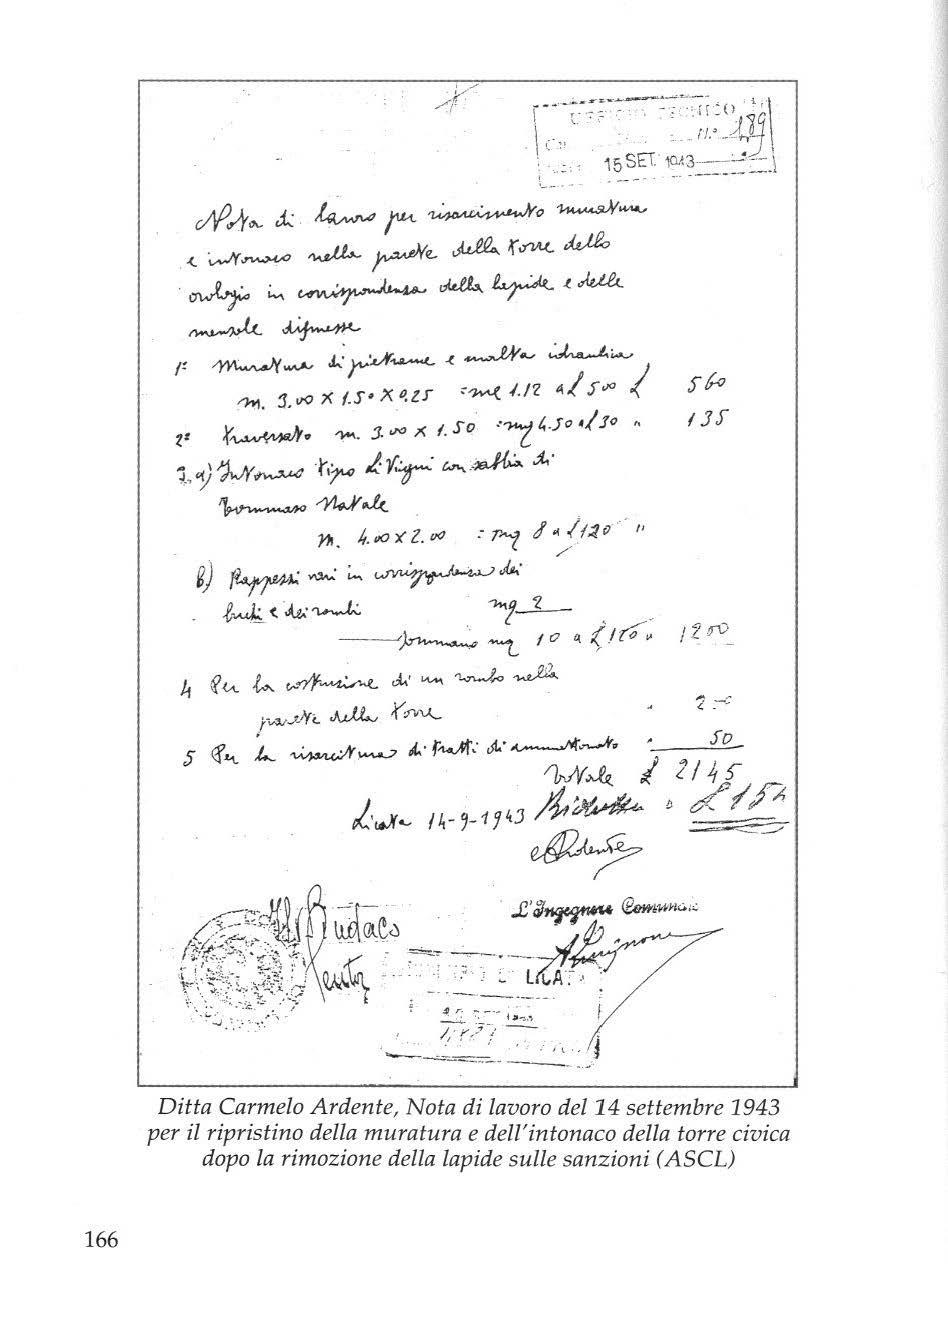 UFFICIO TECNICO
N.° 189
15 SET. 1943
Nota di lavoro per risarcimento muratura
e intonaco nella parete della torre dello
orologio in corrispondenza della lapide e delle
mensole dismesse
1° Muratura di pietrame e malta idraulica
m. 3.00 X 1.50 X 0,25 = mc 1.12 a £ 500 £ 560
2° Traversato m. 3.00 x 1.50 = mq 4.50 a £ 30 " 135
3. a) Intonaco tipo Li Vigni con sabbia di
Tommaso Natale
m. 4.00 x 2.00 = mq 8 a £ 120 "
b) Rappezzi vari in corrispondenza dei
buchi e dei rombi mq 2
Sommano mq 10 a £ 120 " 1200
4 Per la costruzione di un rombo nella
parete della torre " 200
5 Per la risarcitura di tratti di ammattonato " 50
Totale £ 2145
Licata 14-9-1943 £ 154
Ardente
L'Ingegnere Comunale
Il Sindaco
LICATA
Ditta Carmelo Ardente, Nota di lavoro del 14 settembre 1943
per il ripristino della muratura e dell'intonaco della torre civica
dopo la rimozione della lapide sulle sanzioni (ASCL)
166